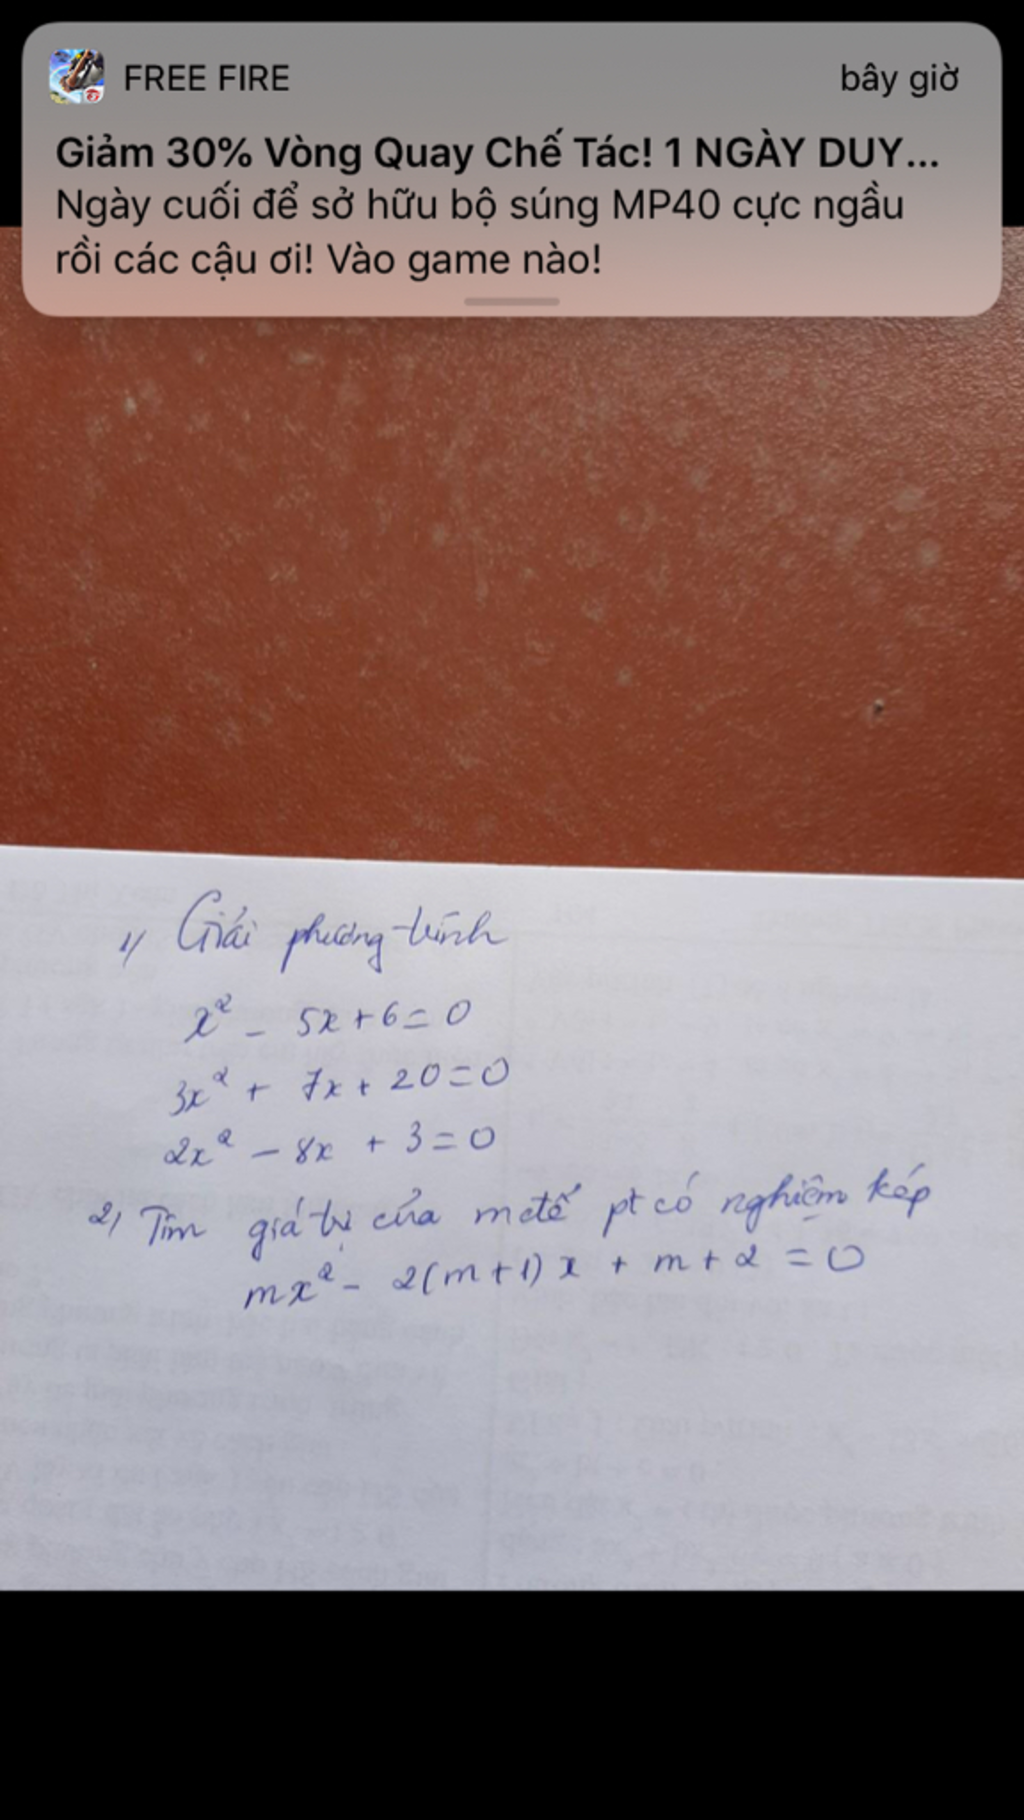 FREE FIRE
bây giờ
Giảm 30% Vòng Quay Chế Tác! 1 NGÀY DUY...
Ngày cuối để sở hữu bộ súng MP40 cực ngầu
rồi các cậu ơi! Vào game nào!
1) Giải phương trình
x² - 5x + 6 = 0
3x² + 7x + 20 = 0
2x² - 8x + 3 = 0
2) Tìm giá trị của m để pt có nghiệm kép
mx² - 2(m+1)x + m + 2 = 0